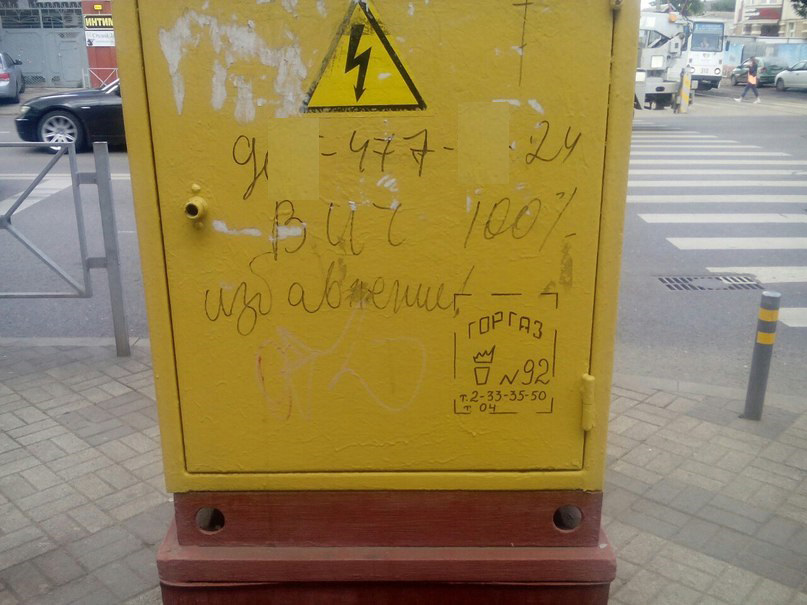 ИНТИМ
9 -477- 24
ВИЧ 100%
избавление!
ГОРГАЗ
N92
т.2-33-35-50
т. 04